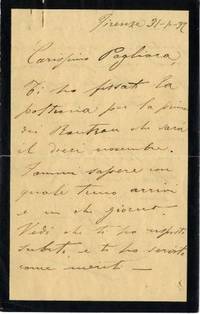 Firenze 31-X-92
Carissimo Pagliara,
Ti ho fissato la
poltrona per la prima
dei Rantzau che sarà
il dieci novembre.
Fammi sapere con
quale treno arrivi
e in che giorno.
Vedi che ti ho risposto
subito, e ti ho servito
come meriti —